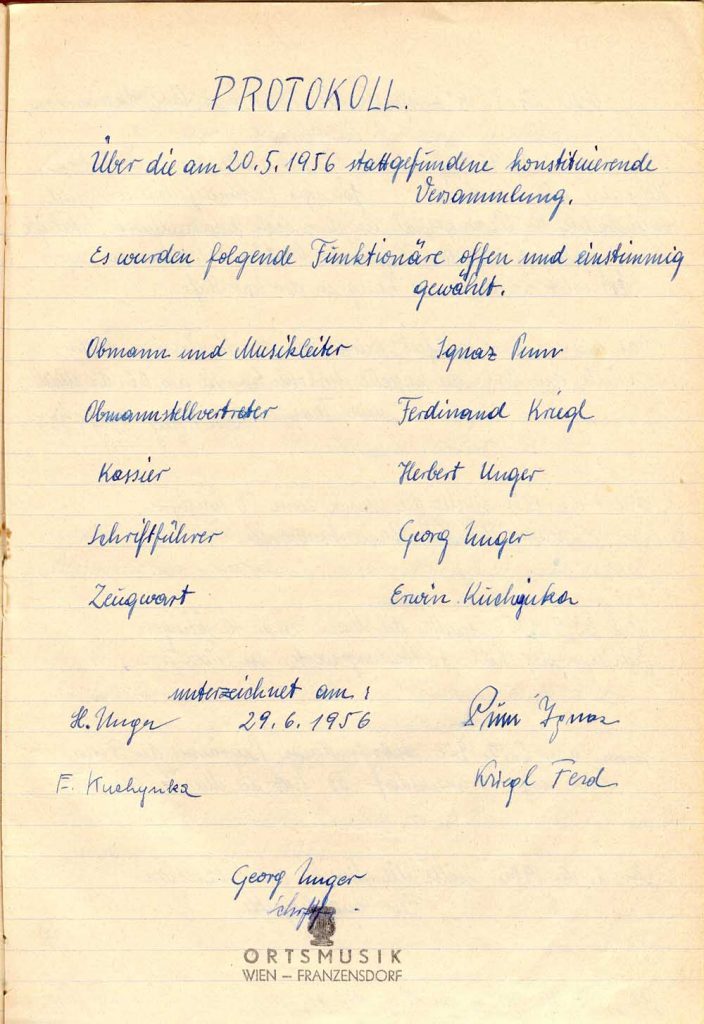 PROTOKOLL.
Über die am 20.5.1956 stattgefundene konstituierende
Versammlung.
Es wurden folgende Funktionäre offen und einstimmig
gewählt.
Obmann und Musikleiter Ignaz
Obmannstellvertreter Ferdinand Kriegl
Kassier Herbert Unger
Schriftführer Georg Unger
Zeugwart Erwin Kuchynka
unterzeichnet am:
H. Unger 29.6.1956 Ignaz
Kuchynka Kriegl Ferd
Georg Unger
ORTSMUSIK
WIEN – FRANZENSDORF